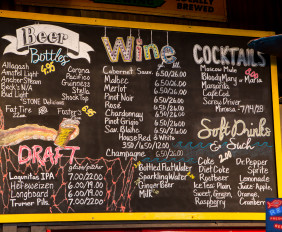 Beer
Bottles
Allagash
Amstel Light
Anchor Steam
Beck's N/A
Bud Light
4.95
Corona
Pacifico
Guinness
Stella
Shock Top
"STONE Delicious
Fat Tire
DRAFT
Lagunitas IPA 7.00/22.00
Hefeweizen 6.00/19.00
Longboard 6.00/19.00
Trumer Pils 7.00/22.00
Wine
Cabernet Sauv. 6.50/26.00
Malbec 6.50/26.00
Merlot 6.50/26.00
Pinot Noir 6.50/26.00
Rosé 6.50/26.00
Chardonnay 6.50/26.00
Pinot Grig 6.50/26.00
Sauv. Blanc 6.50/26.00
House Red & White
3.50/6.50/13.00
Champagne 6.50/26.00
Bottled Flat Water
Sparkling Water
Ginger Beer
Milk
COCKTAILS
Moscow Mule
Bloody Mary or Maria
Margarita
Cafecito
Screw Driver
Mimosa
Soft Drinks
& Sich
2.00
Coke
Diet Coke
Rootbeer
Ice Tea: Plain,
Sweet, Ginger,
Raspberry
Dr. Pepper
Sprite
Lemonade
Juice: Apple,
Orange,
Cranberry